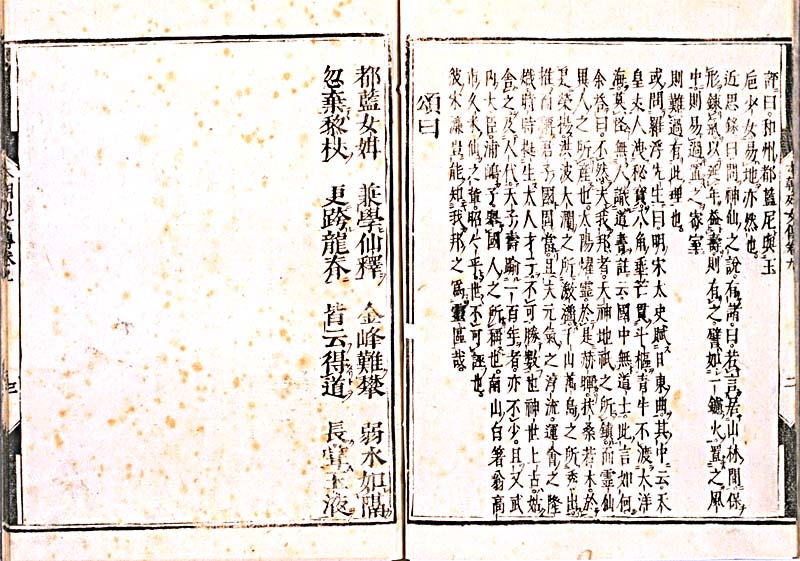 評曰和州都藍尼與玉
巵少女易地亦然也
近思錄曰問神仙之說有諸曰若言居山林間保
形鍊氣以延年益壽則有之譬如一爐火置之風
中則易過置之密室
則難過有此理也
或問羅浮先生曰明宋太史賦日東曲其中云天
皇夫人洩秘寶八角垂芒貫斗樞青牛不渡大洋
海莫怪無人識道書註云國中無道士此言如何
余答曰不然夫我邦者天神地祇之所鎮而靈仙
異人之所産也太陽燿靈於是赫曦扶桑若木於
更榮洪波大瀾之所激千山萬島之所秀出
推而稱君子國固當且夫元氣之浮流運會之隆
時時挺生大人才士不可勝數也神世上古姑
舍之及人代天子壽踰一百年者亦不少且又武
內大臣浦嶋子擧國人之所稱也南山白箸翁高
市久米仙之輩昭昭乎世不可誣也
彼宋濂豈能知我邦之爲靈區哉
頌曰
都藍女 兼學仙釋 金峰難攀 弱水如隔
忽棄黎杖 更跨龍 皆云得道 長玉液